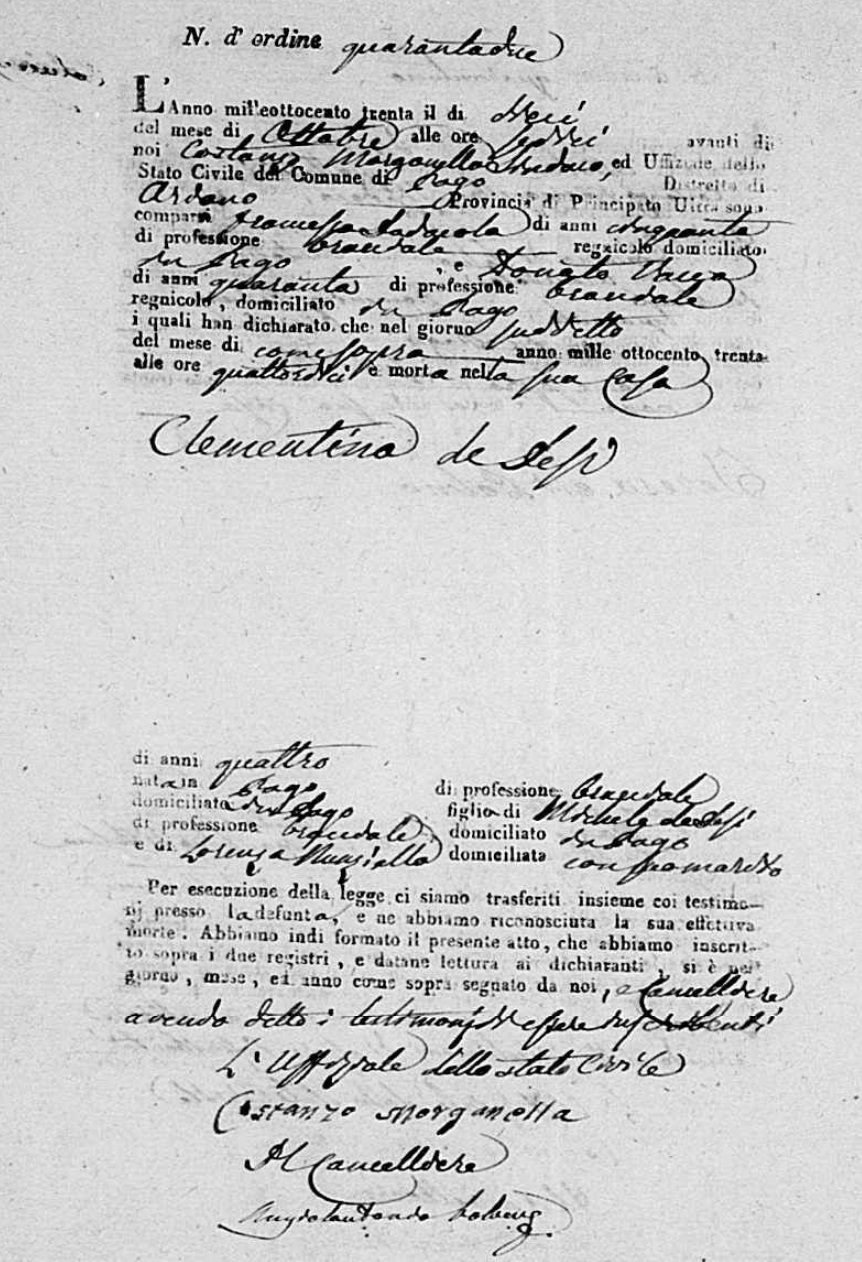 N. d' ordine quarantadue
L'Anno mill'eottocento trenta il di dieci
del mese di Ottobre alle ore sedici avanti di
noi Costanzo Morganella Sindaco, ed Uffiziale dello
Stato Civile del Comune di Pago Distretto di
Ariano Provincia di Principato Ultra sono
comparsi di anni cinquanta
di professione bracciale regnicolo domiciliato
in Pago , e Donato Vacca
di anni quaranta di professione bracciale
regnicolo, domiciliato in Pago
i quali han dichiarato che nel giorno suddetto
del mese di come sopra anno mille ottocento trenta
alle ore quattordici è morta nella sua casa
Clementina de
di anni quattro
nata in Pago di professione bracciale
domiciliata in Pago figlia di Michele de
di professione bracciale domiciliato in Pago
e di Lorenza domiciliata con suo marito
Per esecuzione della legge ci siamo trasferiti insieme coi testimo-
nj presso la defunta, e ne abbiamo riconosciuta la sua effettiva
morte. Abbiamo indi formato il presente atto, che abbiamo inscrit-
to sopra i due registri, e datane lettura ai dichiaranti, si è nel
giorno, mese, ed anno come sopra segnato da noi, e Cancelliere
avendo detto i testimonj di essere
L'Uffiziale dello stato Civile
Costanzo Morganella
Il Cancelliere